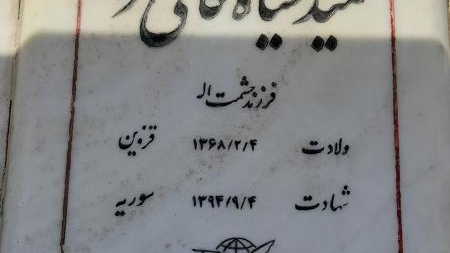 سیاه
فرزند حشمت اله
ولادت ۱۳۶۸/۲/۴ قزین
شهادت ۱۳۹۴/۹/۴ سوریه